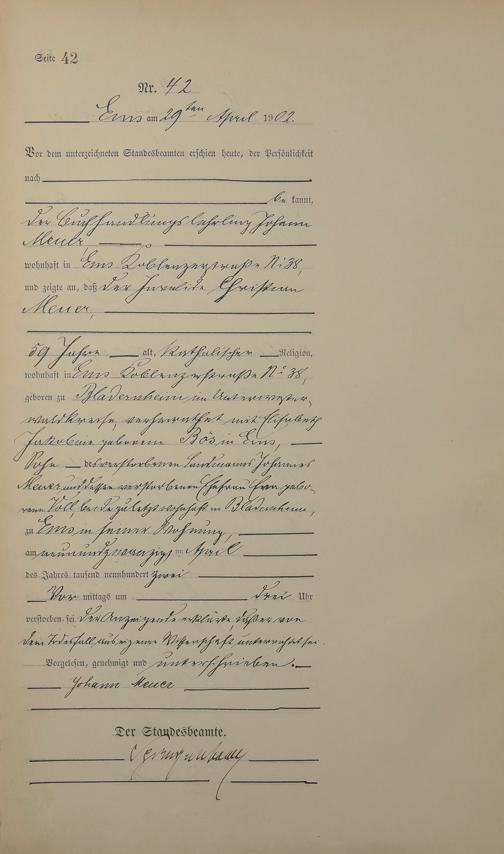 Seite 42
Nr. 42
Ems am 29ten April 1902.
Vor dem unterzeichneten Standesbeamten erschien heute, der Persönlichkeit
nach
be kannt,
der Buchhandlungslehrling Johann
Meuer,
wohnhaft in Ems Koblenzerstraße No 38,
und zeigte an, daß der Invalide Christian
Meuer,
59 Jahre alt, katholischer Religion,
wohnhaft in Ems Koblenzerstraße No 38,
geboren zu Bladernheim, im Unterwester-
waldkreise, verheirathet mit Elisabeth
Jakobine geborene Bös in Ems,
Sohn des verstorbenen Landmannes Johannes
Meuer und dessen verstorbenen Ehefrau Eva gebo-
rene Voll beide zuletzt wohnhaft in Bladernheim,
zu Ems in seiner Wohnung,
am neunundzwanzigsten April
des Jahres tausend neunhundert zwei
Vor mittags um drei Uhr
verstorben sei. Der Anzeigende erklärte, daß er von
dem Todesfall aus eigener Wissenschaft unterrichtet sei.
Vorgelesen, genehmigt und unterschrieben.
Johann Meuer
Der Standesbeamte.